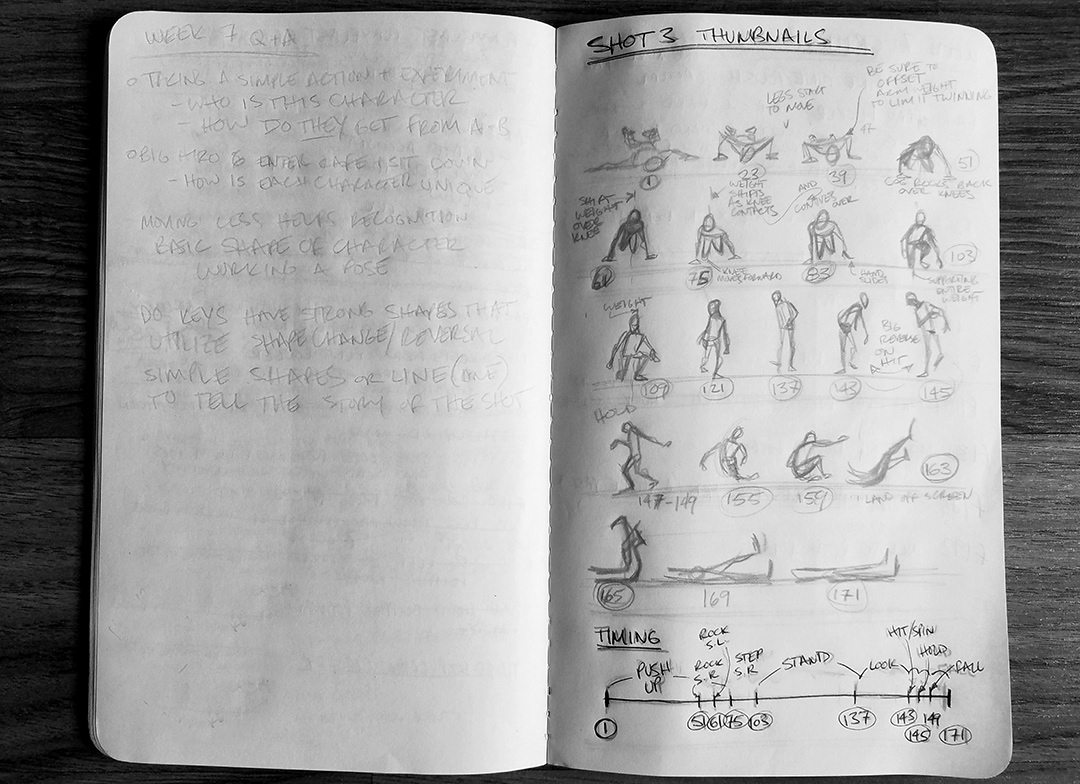 WEEK 7 Q+A
TAKING A SIMPLE ACTION + EXPERIMENT
- WHO IS THIS CHARACTER
- HOW DO THEY GET FROM A-B
BIG HIRO 6 ENTER CAFE + SIT DOWN
- HOW IS EACH CHARACTER UNIQUE
MOVING LESS HELPS RECOGNITION
BASIC SHAPE OF CHARACTER
WORKING A POSE
DO KEYS HAVE STRONG SHAPES THAT
UTILIZE SHAPE CHANGE/REVERSAL
SIMPLE SHAPES OR LINE (LINE)
TO TELL THE STORY OF THE SHOT
SHOT 3 THUMBNAILS
BE SURE TO
OFFSET
ARM
TO LIMIT TWINNING
LEGS START
TO MOVE
47
1
23
39
51
WEIGHT
SHIFTS
AS KNEE
CONTACTS
AND
CONTINUES
OVER
ROCKS BACK
OVER KNEES
SHIFT
WEIGHT
OVER
KNEE
61
75
83
103
KNEE
MOVES FORWARD
HAND
SLIDES
SUPPORTING
ENTIRE
WEIGHT
WEIGHT
BIG
REVERSE
ON
HIT
109
121
137
143
145
HOLD
147-149
155
159
163
LAND OFF SCREEN
165
169
171
TIMING
PUSH
UP
ROCK
S.R
ROCK
S.L
STEP
S.R
STAND
LOOK
HIT/SPIN
HOLD
FALL
1
51
61
75
103
137
143
145
149
171